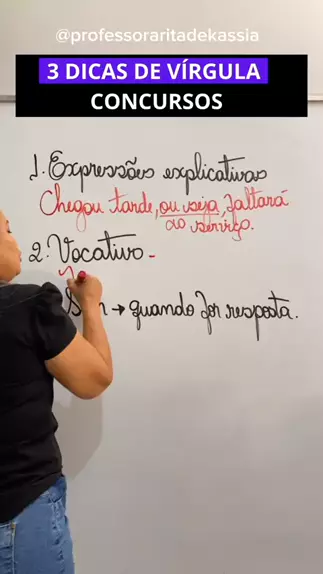 @professoraritadekassia
3 DICAS DE VÍRGULA
CONCURSOS
1. Expressões explicativas
Chegou tarde, ou seja, faltará
ao serviço.
2. Vocativo -
→ quando for resposta.